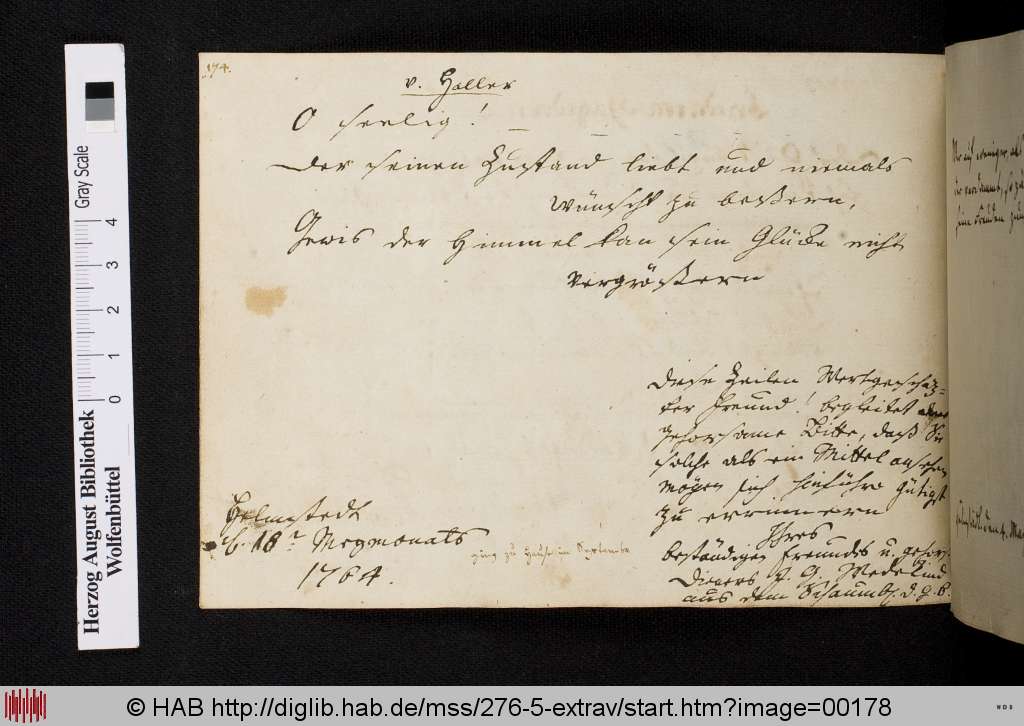 174.
v. Haller
O seelig! _ _ _ _
Der seinen Zustand liebt und niemals
wünscht zu beßern,
Gewis der Himmel kan sein Glücke nicht
vergrößern
Diese Zeilen Wertgeschäz-
ter Freund! begleitet
gehorsame Bitte, daß Sie
solche als ein Mittel ansehen
mögen sich hinführo gütigst
zu erinnern
Ihres
beständigen Freundes u. gehors.
Dieners
aus dem
Helmstedt
d. 18t Maymonats
1764.
ging zu Hause im Septembr
Herzog August Bibliothek
Wolfenbüttel
Gray Scale
0 1 2 3 4
© HAB http://diglib.hab.de/mss/276-5-extrav/start.htm?image=00178
HAB